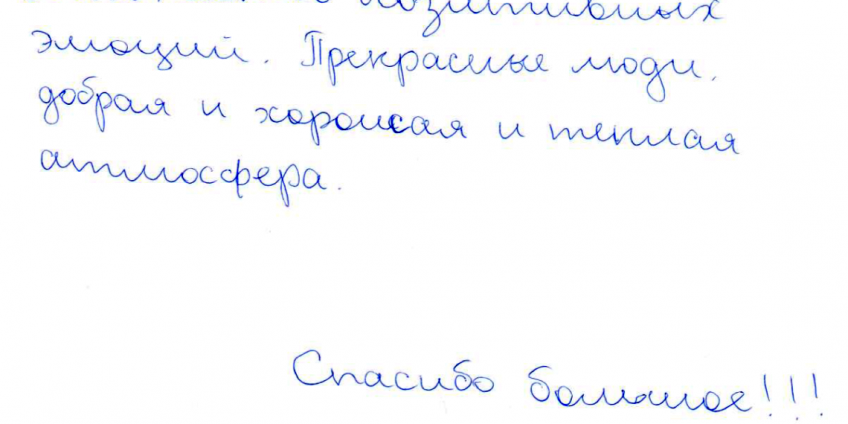 позитивных
эмоций. Прекрасные люди,
добрая и хорошая и теплая
атмосфера.
Спасибо большое!!!